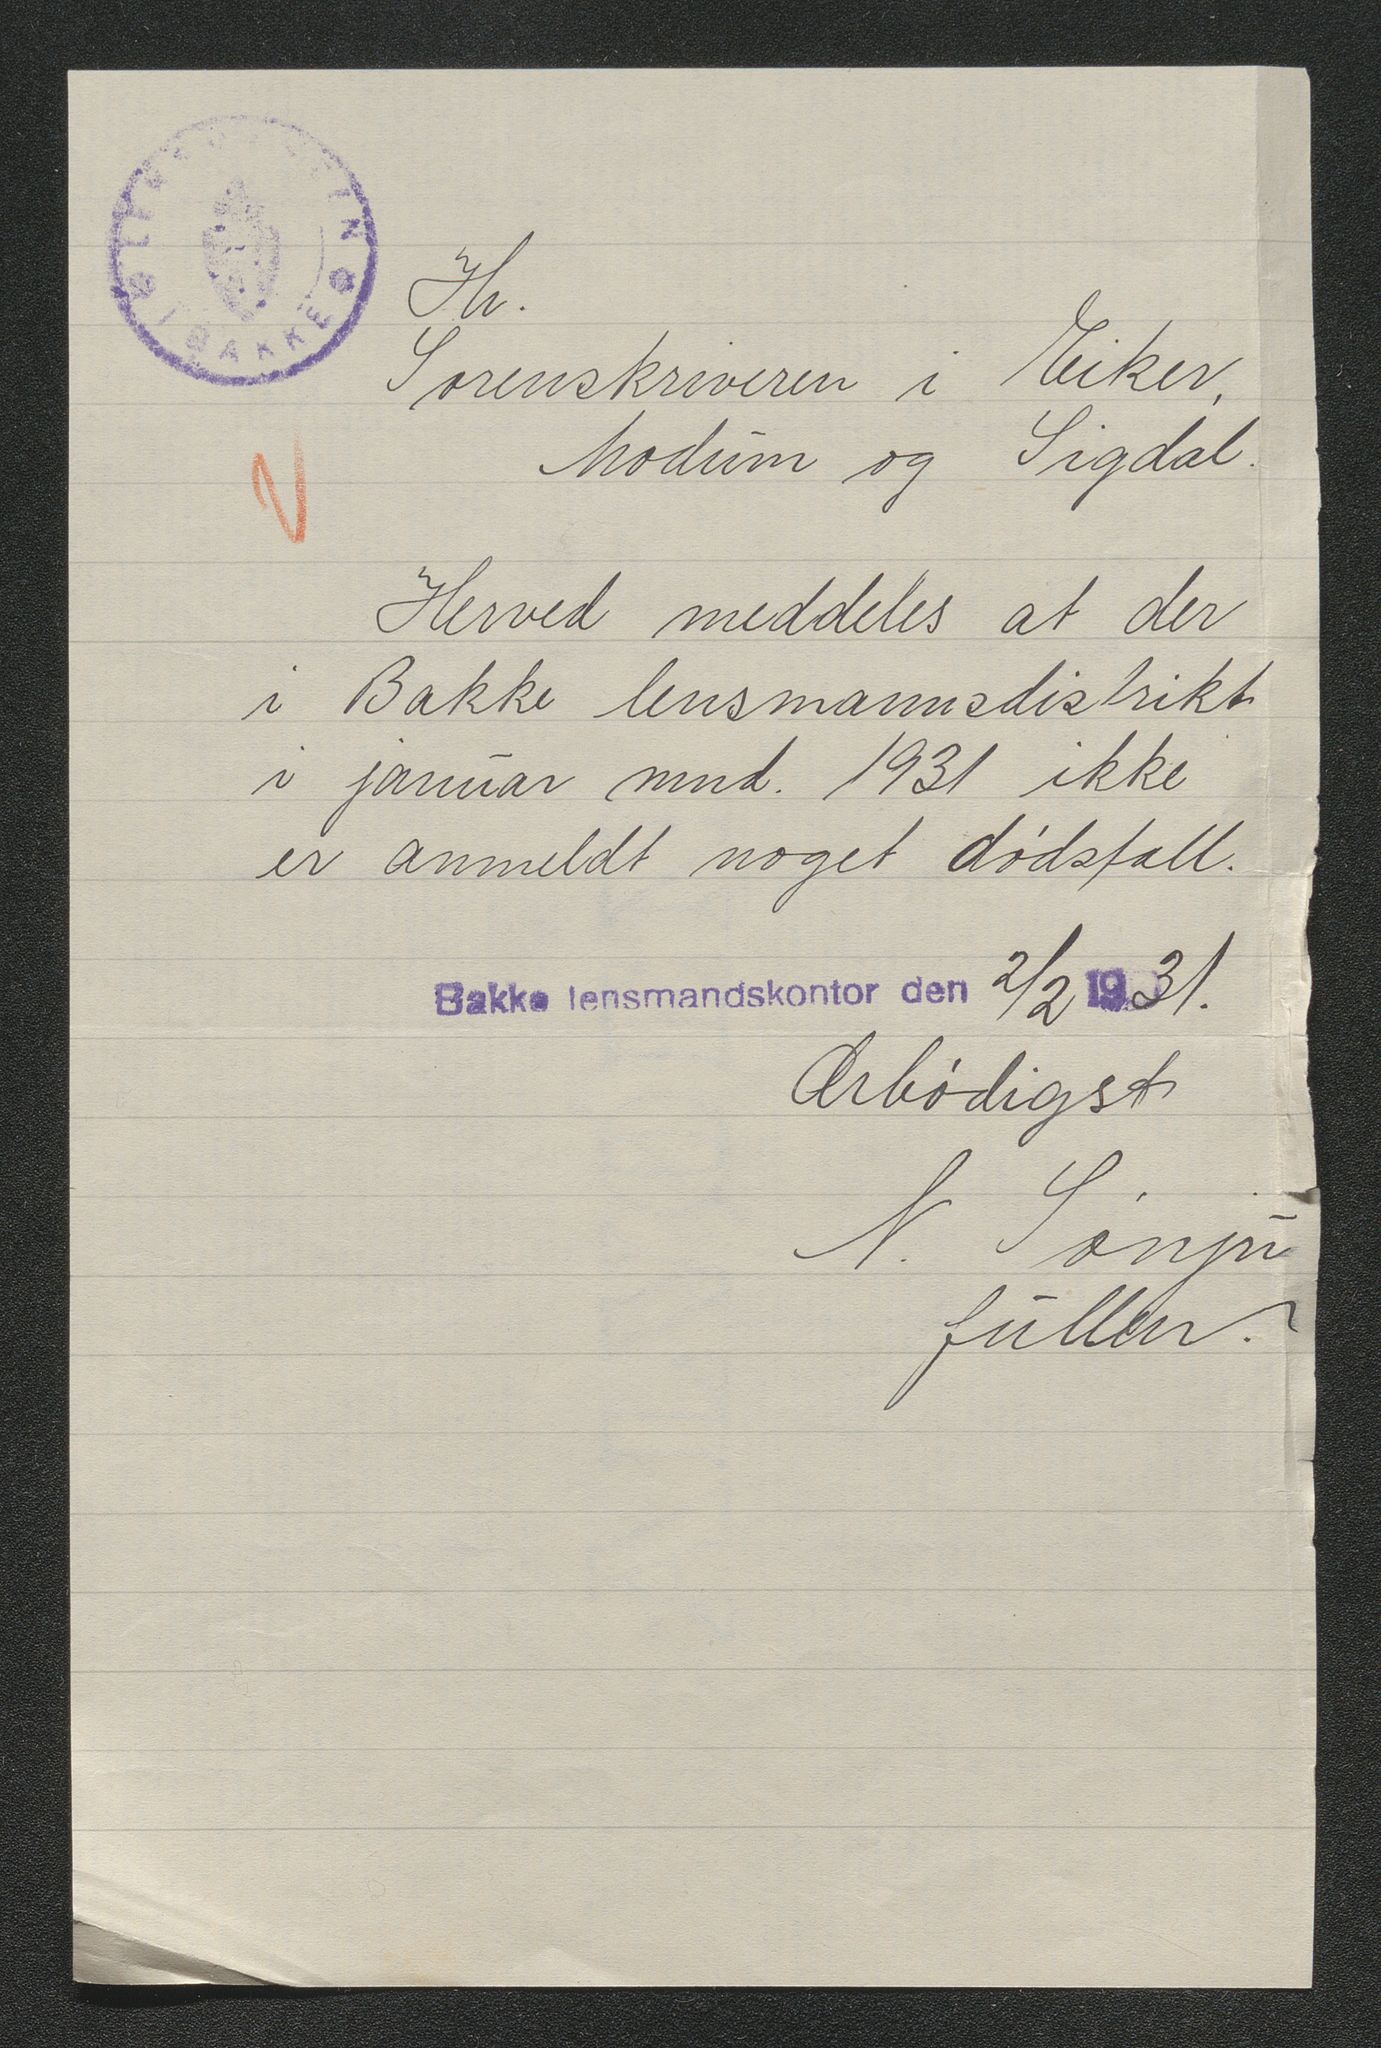 I BAKKE
Hr.
Sorenskriveren i Eiker,
Modum og Sigdal.
Herved meddeles at der
i Bakke lensmannsdistrikt
i januar mnd. 1931 ikke
er anmeldt noget dødsfall.
Bakke lensmandskontor den 2/2 1931.
Ærbødigst
N.
fullm.